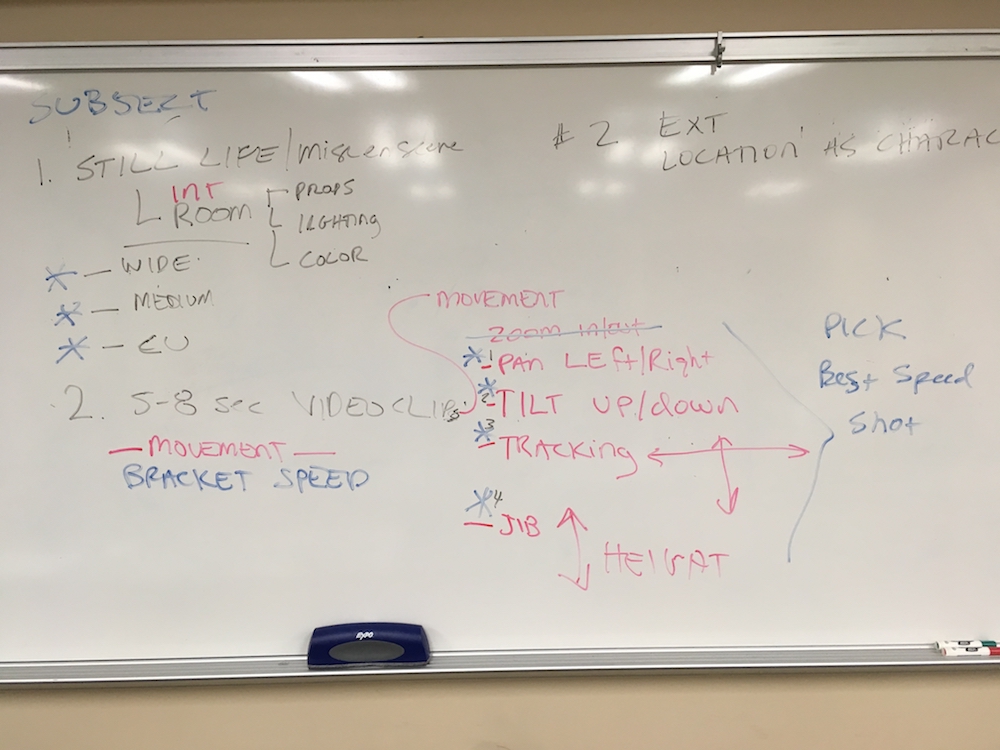 SUBSEZT
1. STILL LIFE/miscenscene
INT
ROOM
PROPS
LIGHTING
COLOR
WIDE
2 MEDIUM
CU
2. 5-8 sec VIDEO CLIPs
— MOVEMENT —
BRACKET SPEED
#2 EXT
LOCATION AS CHARAC
MOVEMENT
zoom in/out
1 - PAN LEft/Right
2 - TILT UP/down
3 - TRACKing
4 - JIB
HEIGHT
PICK
Best Speed
Shot
EXPO